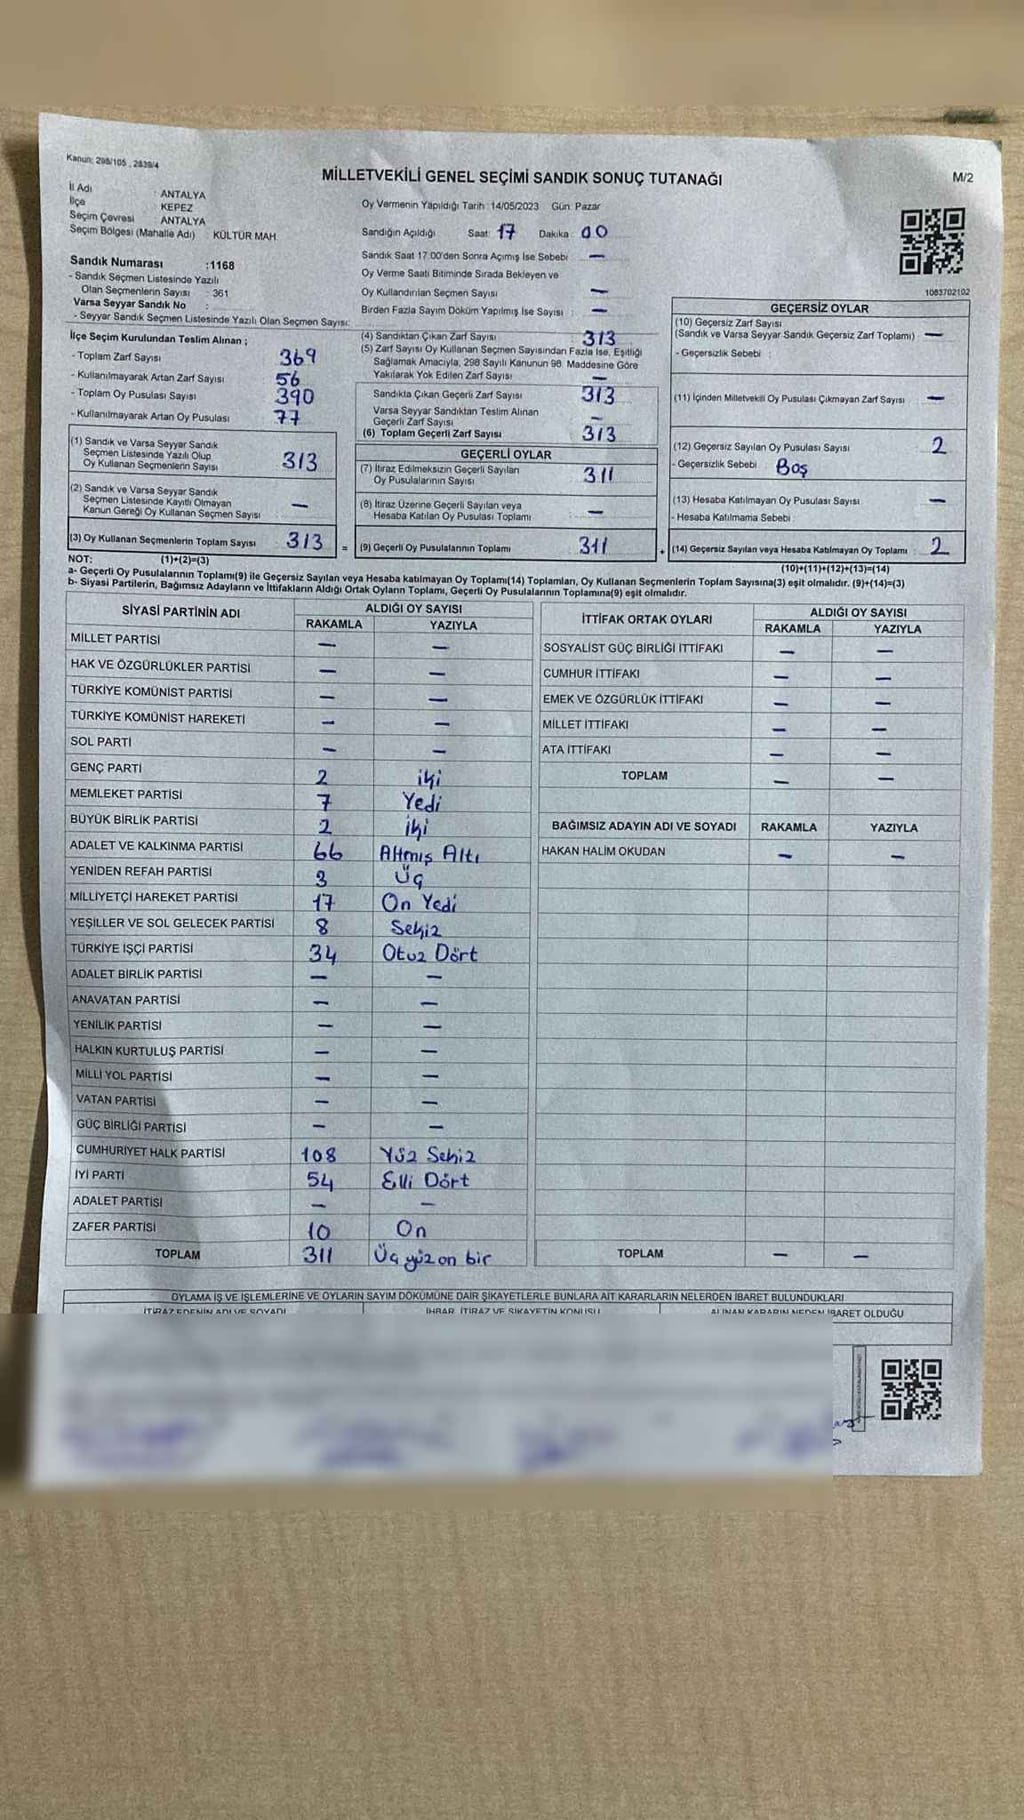 Kanun: 298/105 , 2839/4
MİLLETVEKİLİ GENEL SEÇİMİ SANDIK SONUÇ TUTANAĞI
M/2
İl Adı : ANTALYA
İlçe : KEPEZ
Seçim Çevresi : ANTALYA
Seçim Bölgesi (Mahalle Adı) : KÜLTÜR MAH
Sandık Numarası :1168
- Sandık Seçmen Listesinde Yazılı
Olan Seçmenlerin Sayısı : 361
Varsa Seyyar Sandık No :
- Seyyar Sandık Seçmen Listesinde Yazılı Olan Seçmen Sayısı:
Oy Vermenin Yapıldığı Tarih :14/05/2023 Gün: Pazar
Sandığın Açıldığı Saat: 17 Dakika : 00
Sandık Saat 17:00'den Sonra Açımış İse Sebebi : —
Oy Verme Saati Bitiminde Sırada Bekleyen ve
Oy Kullandırılan Seçmen Sayısı —
Birden Fazla Sayım Döküm Yapılmış İse Sayısı : —
1083702102
İlçe Seçim Kurulundan Teslim Alınan ;
- Toplam Zarf Sayısı 369
- Kullanılmayarak Artan Zarf Sayısı 56
- Toplam Oy Pusulası Sayısı 390
- Kullanılmayarak Artan Oy Pusulası 77
(1) Sandık ve Varsa Seyyar Sandık
Seçmen Listesinde Yazılı Olup
Oy Kullanan Seçmenlerin Sayısı 313
(2) Sandık ve Varsa Seyyar Sandık
Seçmen Listesinde Kayıtlı Olmayan
Kanun Gereği Oy Kullanan Seçmen Sayısı —
(3) Oy Kullanan Seçmenlerin Toplam Sayısı 313 =
(4) Sandıktan Çıkan Zarf Sayısı 313
(5) Zarf Sayısı Oy Kullanan Seçmen Sayısından Fazla İse, Eşitliği
Sağlamak Amacıyla, 298 Sayılı Kanunun 98. Maddesine Göre
Yakılarak Yok Edilen Zarf Sayısı —
Sandıkta Çıkan Geçerli Zarf Sayısı 313
Varsa Seyyar Sandıktan Teslim Alınan
Geçerli Zarf Sayısı —
(6) Toplam Geçerli Zarf Sayısı 313
GEÇERLİ OYLAR
(7) İtiraz Edilmeksizin Geçerli Sayılan
Oy Pusulalarının Sayısı 311
(8) İtiraz Üzerine Geçerli Sayılan veya
Hesaba Katılan Oy Pusulası Toplamı —
(9) Geçerli Oy Pusulalarının Toplamı 311 +
GEÇERSİZ OYLAR
(10) Geçersiz Zarf Sayısı
(Sandık ve Varsa Seyyar Sandık Geçersiz Zarf Toplamı) —
- Geçersizlik Sebebi :
(11) İçinden Milletvekili Oy Pusulası Çıkmayan Zarf Sayısı —
(12) Geçersiz Sayılan Oy Pusulası Sayısı 2
- Geçersizlik Sebebi : Boş
(13) Hesaba Katılmayan Oy Pusulası Sayısı —
- Hesaba Katılmama Sebebi :
(14) Geçersiz Sayılan veya Hesaba Katılmayan Oy Toplamı 2
NOT: (1)+(2)=(3)
(10)+(11)+(12)+(13)=(14)
a- Geçerli Oy Pusulalarının Toplamı(9) ile Geçersiz Sayılan veya Hesaba katılmayan Oy Toplamı(14) Toplamları, Oy Kullanan Seçmenlerin Toplam Sayısına(3) eşit olmalıdır. (9)+(14)=(3)
b- Siyasi Partilerin, Bağımsız Adayların ve İttifakların Aldığı Ortak Oyların Toplamı, Geçerli Oy Pusulalarının Toplamına(9) eşit olmalıdır.
SİYASİ PARTİNİN ADI ALDIĞI OY SAYISI
RAKAMLA YAZIYLA
MİLLET PARTİSİ — —
HAK VE ÖZGÜRLÜKLER PARTİSİ — —
TÜRKİYE KOMÜNİST PARTİSİ — —
TÜRKİYE KOMÜNİST HAREKETİ — —
SOL PARTİ — —
GENÇ PARTİ 2 iki
MEMLEKET PARTİSİ 7 Yedi
BÜYÜK BİRLİK PARTİSİ 2 iki
ADALET VE KALKINMA PARTİSİ 66 Altmış Altı
YENİDEN REFAH PARTİSİ 3 Üç
MİLLİYETÇİ HAREKET PARTİSİ 17 On Yedi
YEŞİLLER VE SOL GELECEK PARTİSİ 8 Sekiz
TÜRKİYE İŞÇİ PARTİSİ 34 Otuz Dört
ADALET BİRLİK PARTİSİ — —
ANAVATAN PARTİSİ — —
YENİLİK PARTİSİ — —
HALKIN KURTULUŞ PARTİSİ — —
MİLLİ YOL PARTİSİ — —
VATAN PARTİSİ — —
GÜÇ BİRLİĞİ PARTİSİ — —
CUMHURİYET HALK PARTİSİ 108 Yüz Sekiz
İYİ PARTİ 54 Elli Dört
ADALET PARTİSİ — —
ZAFER PARTİSİ 10 On
TOPLAM 311 Üç yüz on bir
İTTİFAK ORTAK OYLARI ALDIĞI OY SAYISI
RAKAMLA YAZIYLA
SOSYALİST GÜÇ BİRLİĞİ İTTİFAKI — —
CUMHUR İTTİFAKI — —
EMEK VE ÖZGÜRLÜK İTTİFAKI — —
MİLLET İTTİFAKI — —
ATA İTTİFAKI — —
TOPLAM — —
BAĞIMSIZ ADAYIN ADI VE SOYADI RAKAMLA YAZIYLA
HAKAN HALİM OKUDAN — —
TOPLAM — —
OYLAMA İŞ VE İŞLEMLERİNE VE OYLARIN SAYIM DÖKÜMÜNE DAİR ŞİKAYETLERLE BUNLARA AİT KARARLARIN NELERDEN İBARET BULUNDUKLARI
İTİRAZ EDENİN ADI VE SOYADI İHBAR, İTİRAZ VE ŞİKAYETİN KONUSU ALINAN KARARIN NEDEN İBARET OLDUĞU